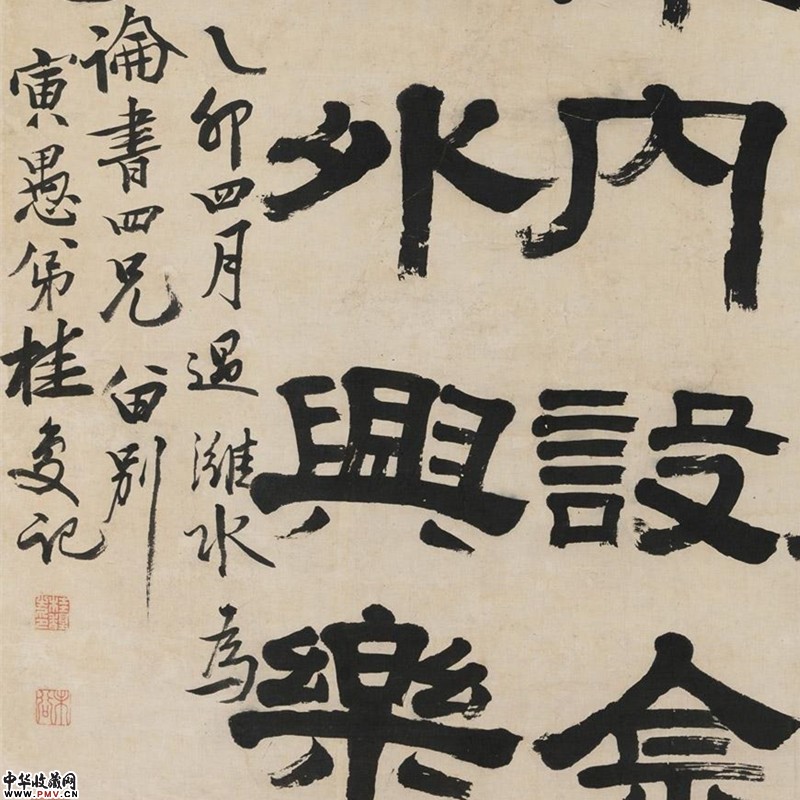 內設金
外興樂
乙卯四月過濰水為
論書四兄留別
寅愚弟桂复記
未谷
中华收藏网
WWW.PMV.CN